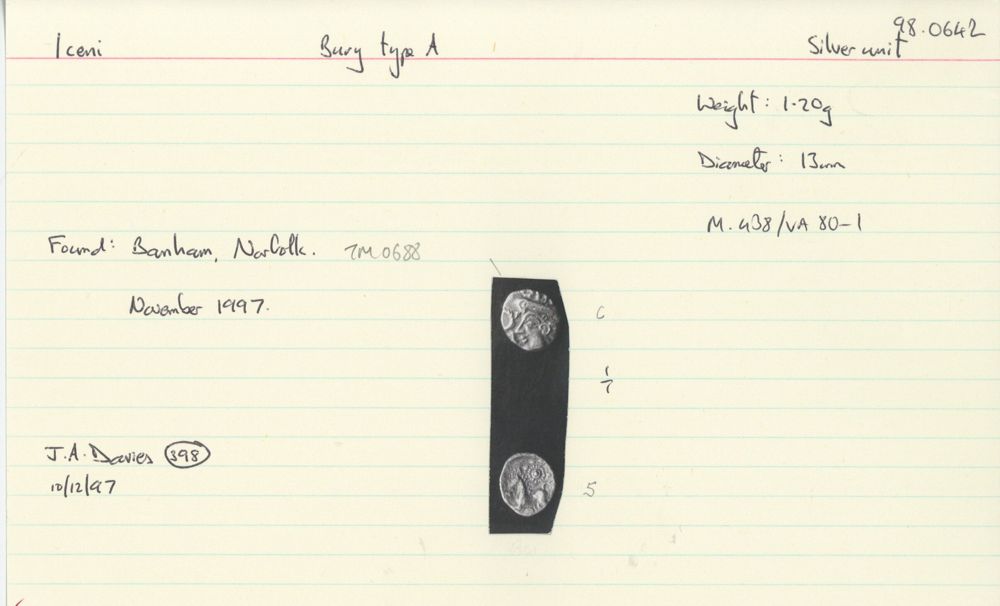 98.0642
Iceni Bury type A Silver unit
Weight: 1.20g
Diameter: 13mm
M.438/VA 80-1
Found: Banham, Norfolk. TM0688
November 1997.
C
1/7
J.A. Davies 398
10/12/97
5